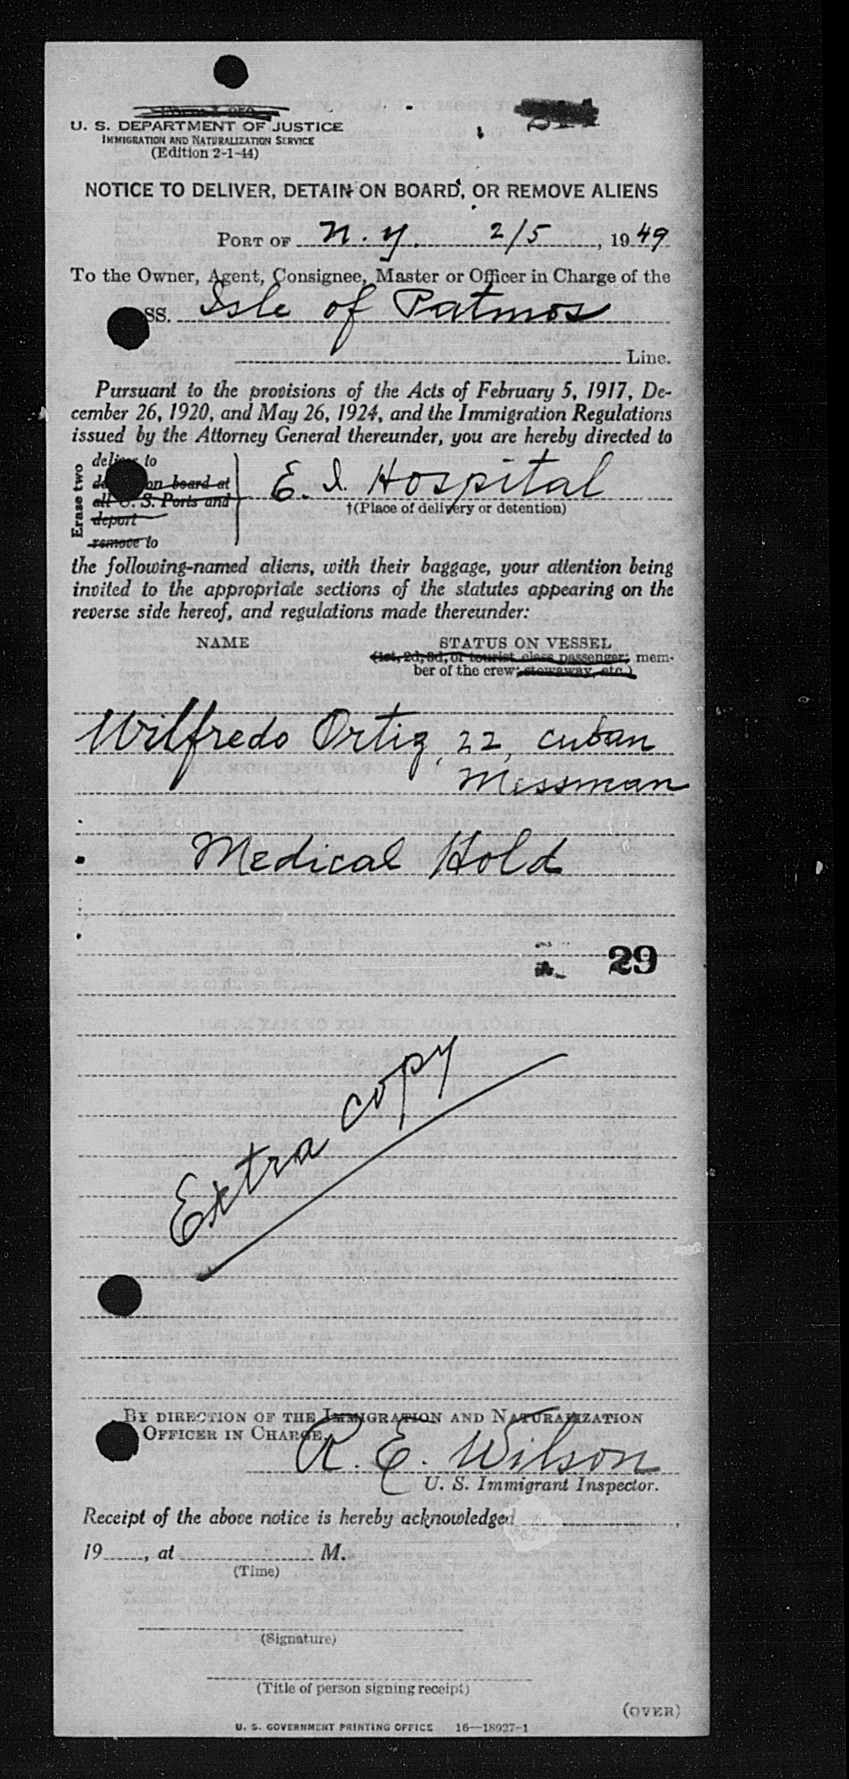 U. S. DEPARTMENT OF JUSTICE
IMMIGRATION AND NATURALIZATION SERVICE
(Edition 2-1-44)
NOTICE TO DELIVER, DETAIN ON BOARD, OR REMOVE ALIENS
PORT OF N. Y. 2/5, 1949
To the Owner, Agent, Consignee, Master or Officer in Charge of the
SS. Isle of Patmos
Line.
Pursuant to the provisions of the Acts of February 5, 1917, De-
cember 26, 1920, and May 26, 1924, and the Immigration Regulations
issued by the Attorney General thereunder, you are hereby directed to
Erase two
deliver to
on board at
all U. S. Ports and
deport
remove to
E. I. Hospital
†(Place of delivery or detention)
the following-named aliens, with their baggage, your attention being
invited to the appropriate sections of the statutes appearing on the
reverse side hereof, and regulations made thereunder:
NAME STATUS ON VESSEL
(1st, 2d, 3d, or tourist class passenger; mem-
ber of the crew; stowaway, etc.)
Wilfredo Ortiz, 22, cuban
Messman
Medical Hold
29
Extra copy
BY DIRECTION OF THE IMMIGRATION AND NATURALIZATION
OFFICER IN CHARGE.
R. E. Wilson
U. S. Immigrant Inspector.
Receipt of the above notice is hereby acknowledged ,
19 , at M.
(Time)
(Signature)
(Title of person signing receipt)
(OVER)
U. S. GOVERNMENT PRINTING OFFICE 16—18027-1